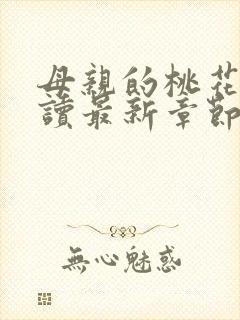 母親的桃花
讀最新章節
無心魅惑